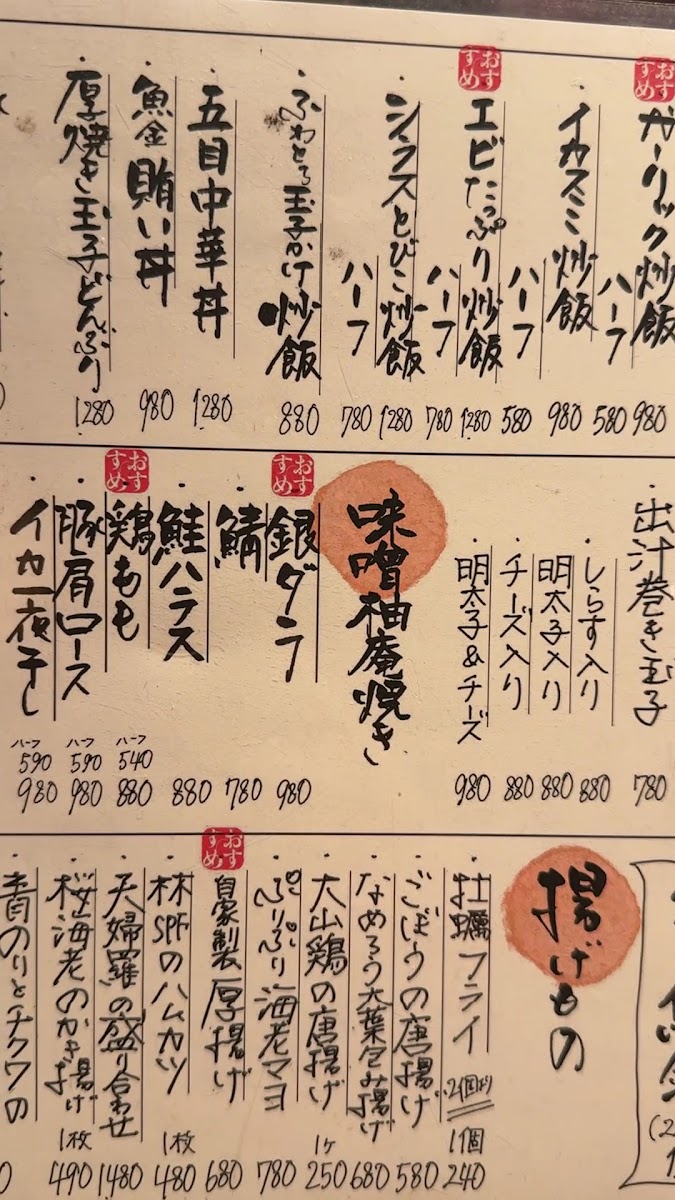 おすすめ
ガーリック炒飯
980
ハーフ
580
イカスミ炒飯
980
ハーフ
580
おすすめ
エビたっぷり炒飯
1280
ハーフ
780
シラスとびこ炒飯
1280
ハーフ
780
ふわとろ玉子かけ炒飯
880
五目中華丼
1280
魚金賄い丼
980
厚焼き玉子どんぶり
1280
出汁巻き玉子
780
しらす入り
880
明太子入り
880
チーズ入り
880
明太子&チーズ
980
味噌柚庵焼き
おすすめ
銀ダラ
980
鯖
780
鮭ハラス
880
おすすめ
鶏もも
ハーフ
540
880
豚肩ロース
ハーフ
590
980
イカ一夜干し
ハーフ
590
980
揚げもの
牡蠣フライ
2個より
1個
240
ごぼうの唐揚げ
580
なめろう大葉包み揚げ
680
大山鶏の唐揚げ
1ヶ
250
ぷりぷり海老マヨ
780
おすすめ
自家製厚揚げ
680
林SPFのハムカツ
1枚
480
天婦羅の盛り合わせ
1480
桜海老のかき揚げ
1枚
490
青のりとチクワの